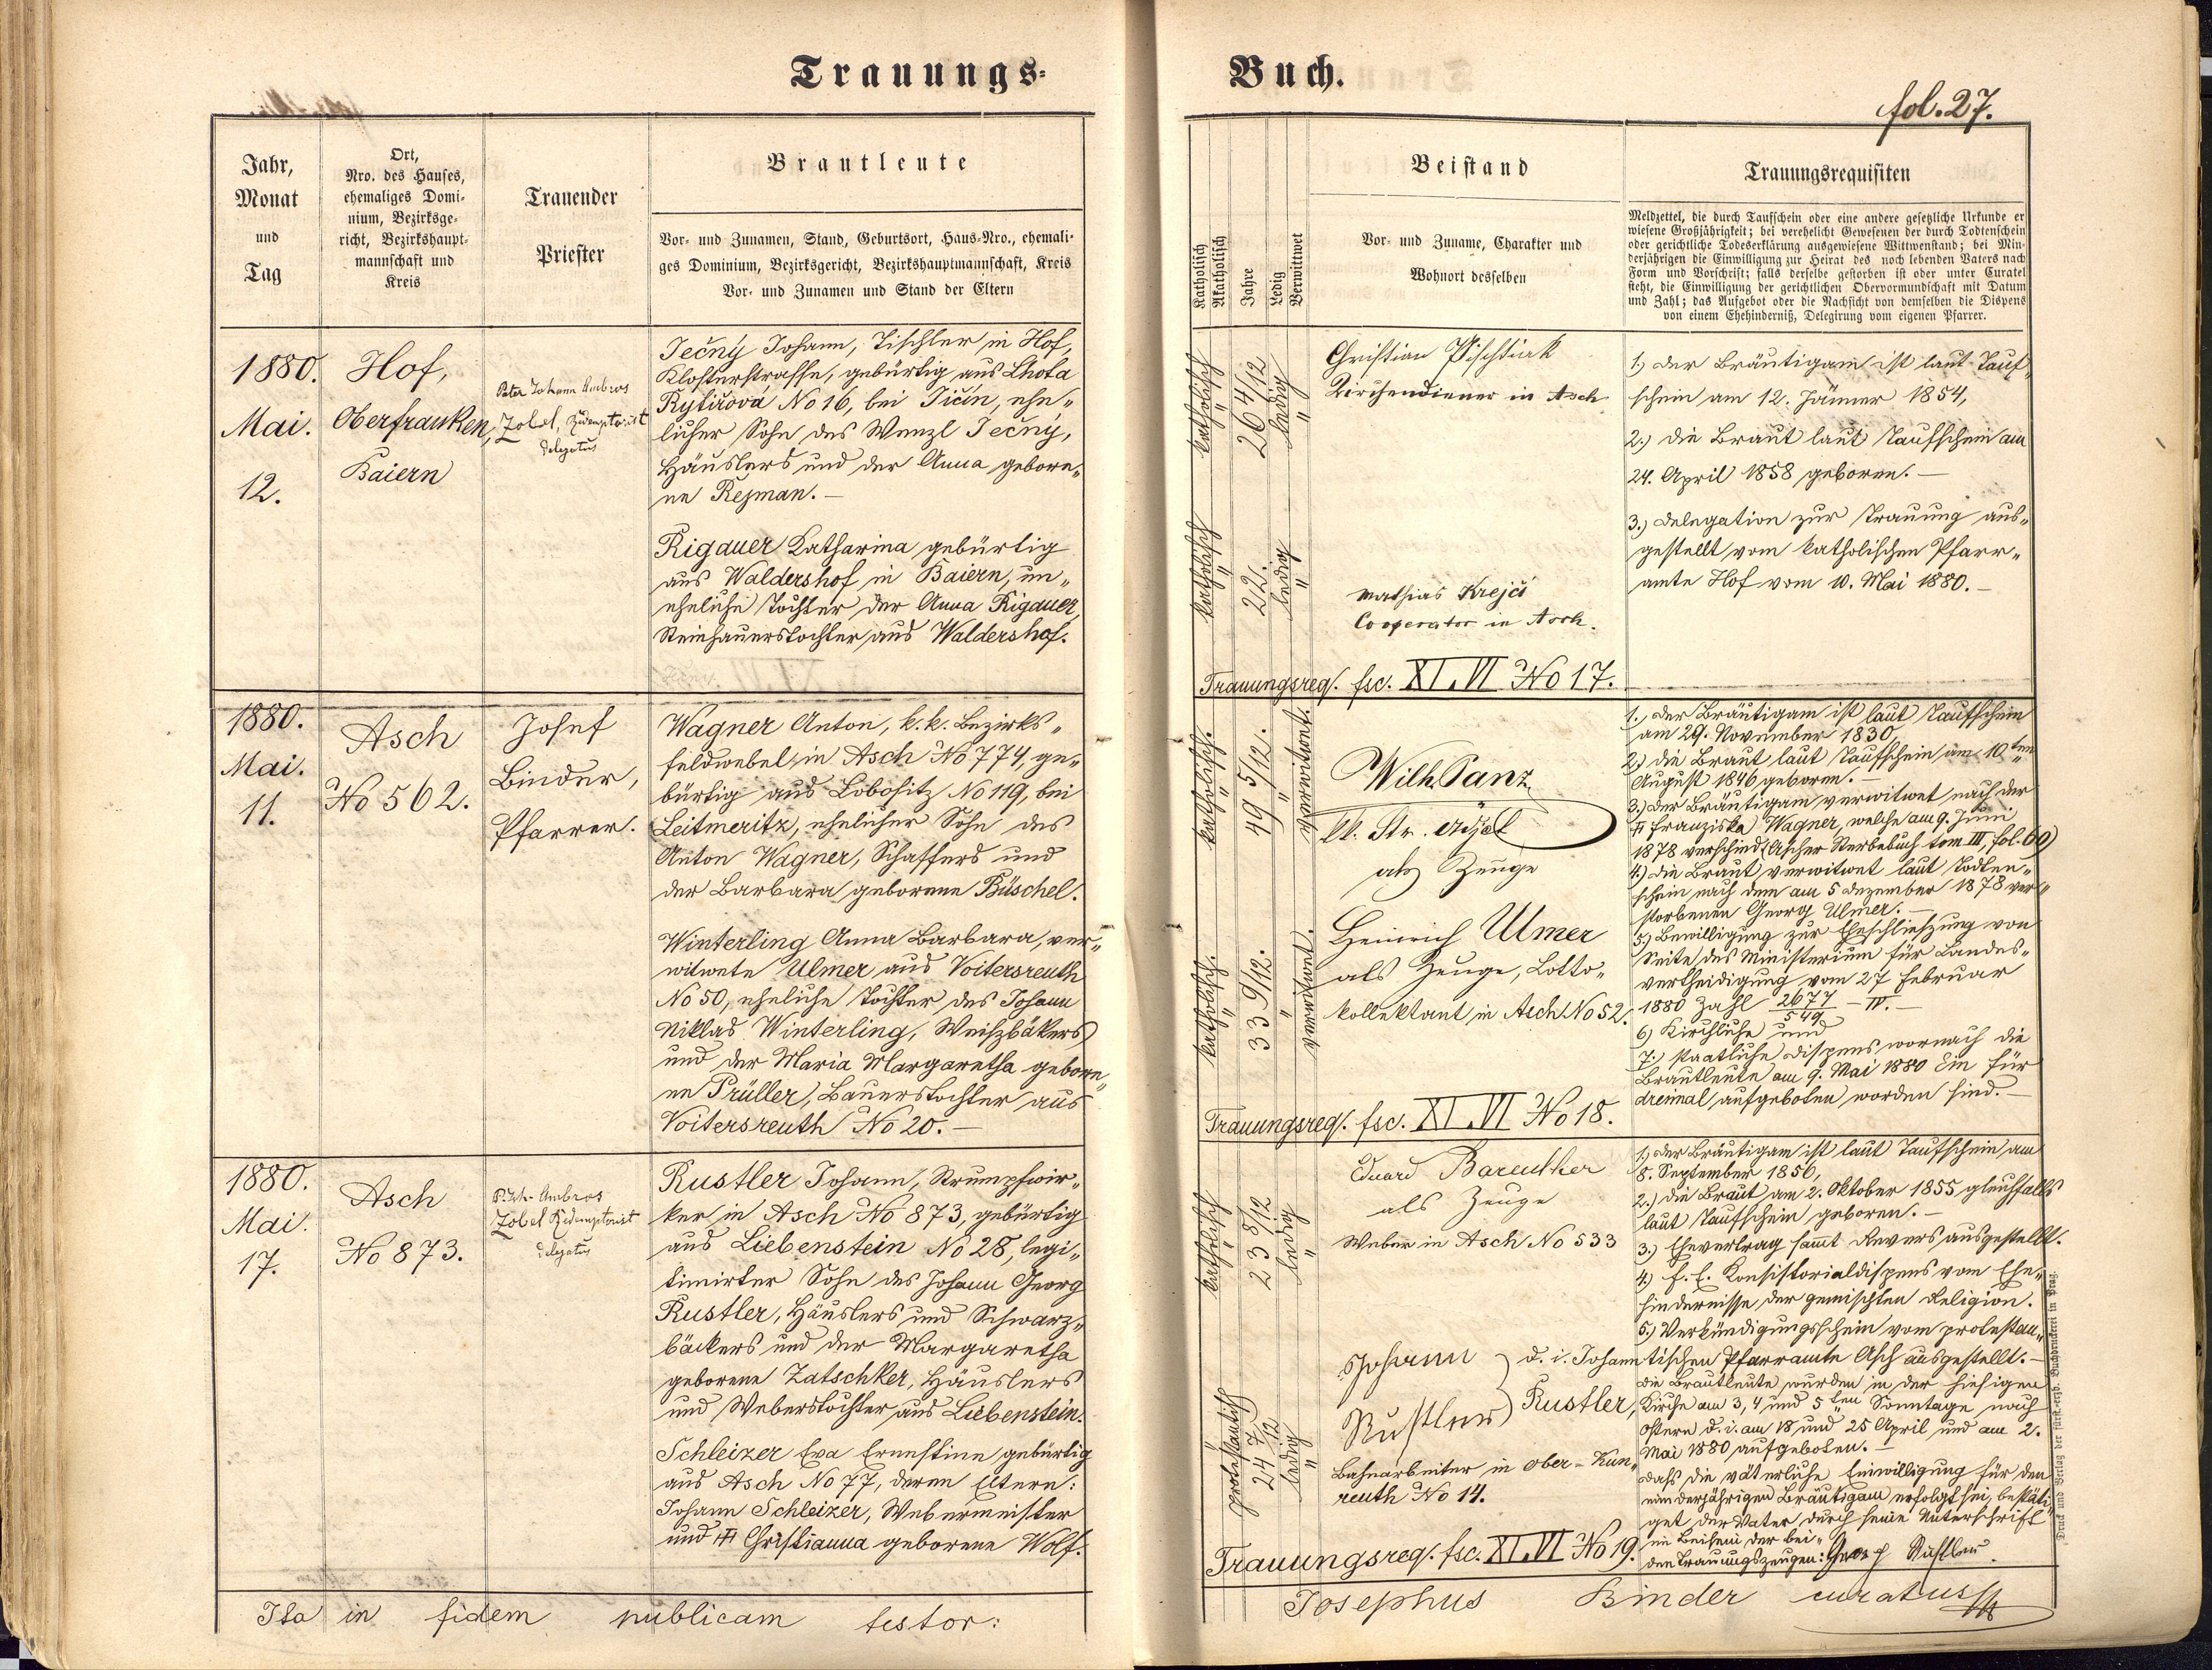 Trauungs-
Buch.
fol. 27.
Jahr,
Monat
und
Tag
Ort,
Nro. des Hauses,
ehemaliges Domi-
nium, Bezirksge-
richt, Bezirkshaupt-
mannschaft und
Kreis
Trauender
Priester
Brautleute
Vor- und Zunamen, Stand, Geburtsort, Haus-Nro., ehemali-
ges Dominium, Bezirksgericht, Bezirkshauptmannschaft, Kreis
Vor- und Zunamen und Stand der Eltern
Katholisch
Akatholisch
Jahre
Ledig
Verwittwet
Beistand
Vor- und Zuname, Charakter und
Wohnort desselben
Trauungsrequisiten
Meldzettel, die durch Taufschein oder eine andere gesetzliche Urkunde er
wiesene Großjährigkeit; bei verehelicht Gewesenen der durch Todtenschein
oder gerichtliche Todeserklärung ausgewiesene Wittwenstand; bei Min-
derjährigen die Einwilligung zur Heirat des noch lebenden Vaters nach
Form und Vorschrift; falls derselbe gestorben ist oder unter Curatel
steht, die Einwilligung der gerichtlichen Obervormundschaft mit Datum
und Zahl; das Aufgebot oder die Nachsicht von demselben die Dispens
von einem Ehehinderniß, Delegirung vom eigenen Pfarrer.
1880.
Mai.
12.
Hof,
Oberfranken,
Baiern
Pater Johann Ambros
Zobel, Redemptorist
delegatus
Ječný Johann, Tischler in Hof,
Klosterstrasse, gebürtig aus Lhota
Rytířová No 16, bei Jičín, ehe„
licher Sohn des Wenzl Ječný,
Häuslers und der Anna gebore„
ne Rejman. –
Rigauer Katharina gebürtig
aus Waldershof in Baiern, un„
eheliche Tochter der Anna Rigauer,
Steinhauerstochter aus Waldershof.
katholisch
"
26 4/12
ledig
"
katholisch
"
22.
ledig
"
Christian Pischtiak
Kirchendiener in Asch
Mathias Krejčí
Cooperator in Asch.
Trauungsreq. fsc. XI. VI No 17.
1.) Der Bräutigam ist laut Tauf„
schein am 12. Jänner 1854,
2.) die Braut laut Taufschein am
24. April 1858 geboren. –
3.) Delegation zur Trauung aus„
gestellt vom katholischen Pfarr„
amte Hof vom 10. Mai 1880. –
1880.
Mai.
11.
Asch
No 562.
Josef
Binder,
Pfarrer.
Wagner Anton, k. k. Bezirks„
feldwebel in Asch No 774, ge„
bürtig aus Lobositz No 119, bei
Leitmeritz, ehelicher Sohn des
Anton Wagner, Schaffers und
der Barbara geborene Büschel.
Winterling Anna Barbara, ver„
witwete Ulmer aus Voitersreuth
No 50, eheliche Tochter des Johann
Niklas Winterling, Weiszbäkers
und der Maria Margaretha gebore„
ne Prüller, Bauerstochter aus
Voitersreuth No 20. –
katholisch.
"
49 5/12.
"
verwitwet.
katholisch.
"
33 9/12.
"
verwitwet.
Wilh. Panz
als Zeuge
Heinrich Ulmer
als Zeuge, Lotto„
kollektant in Asch No 52.
Trauungsreq. fsc. XI. VI No 18.
1., Der Bräutigam ist laut Taufschein
am 29. November 1830,
2.) die Braut laut Taufschein am 10ten
August 1846 geboren. –
3.) Der Bräutigam verwitwet nach der
Franziska Wagner, welche am 9. Juni
1878 verschied (Ascher Sterbebuch tom III, fol. 60)
4.) die Braut verwitwet laut Todten„
schein nach dem am 5 Dezember 1878 ver„
storbenen Georg Ulmer. –
5.) Bewilligung zur Eheschlieszung von
Seite des Ministerium für Landes„
vertheidigung vom 27 Februar
1880 Zahl 2677/549 – IV. –
6) Kirchliche und
7.) staatliche Dispens wornach die
Brautleute am 9. Mai 1880 Ein für
dreimal aufgeboten worden sind. –
1880.
Mai.
17.
Asch
No 873.
P. Joh. Ambros
Zobel Redemptorist
delegatus
Rustler Johann, Strumpfwir„
ker in Asch No 873, gebürtig
aus Liebenstein No 28, legi„
timirter Sohn des Johann Georg
Rustler, Häuslers und Schwarz„
bäckers und der Margaretha
geborene Zatschker, Häuslers
und Weberstochter aus Liebenstein.
Schleizer Eva Ernestine gebürtig
aus Asch No 77, deren Eltern:
Johann Schleizer, Webermeister
und Christianna geborene Wolf.
katholisch
"
23 8/12
ledig
"
protestantisch
24 7/12
ledig
"
Eduard Bareuther
als Zeuge
Weber in Asch No 533
Johann
Rustler
d. i. Johann
Rustler,
Bahnarbeiter in Ober-Kun„
reuth No 14.
Trauungsreq. fsc. XI. VI No 19.
1.) Der Bräutigam ist laut Taufschein am
8. September 1856,
2.) Die Braut am 2. Oktober 1855 gleichfalls
laut Taufschein geboren. –
3.) Ehevertrag sammt Revers ausgestellt.
4.) f. E. Konsistorialdispens vom Ehe„
hindernisse der gemischten Religion.
5.) Verkündigungsschein vom protestan„
tischen Pfarramte Asch ausgestellt. –
Die Brautleute wurden in der hiesigen
Kirche am 3, 4 und 5ten Sonntage nach
Ostern d. i. am 18 und 25 April und am 2.
Mai 1880 aufgeboten. –
Dass die väterliche Einwilligung für den
minderjährigen Bräutigam erfolgt sei, bestäti„
get der Vater durch seine Unterschrift
im Beisein der bei„
den Trauungszeugen: Georg Rustler.
Druck und Verlag der fürst.-erzb. Buchdruckerei in Prag.
Ita in fidem publicam testor:
Josephus Binder curatus